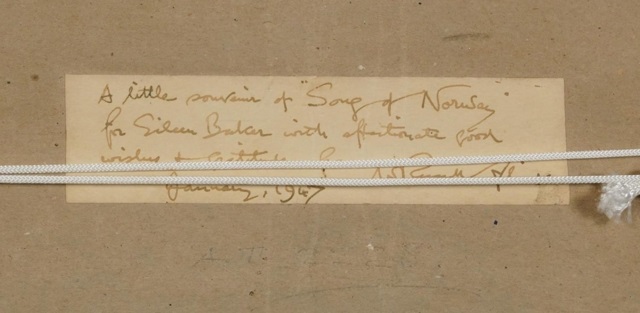 A little souvenir of "Song of Norway"
for Eileen Baker with affectionate good
wishes & gratitude
January, 1947